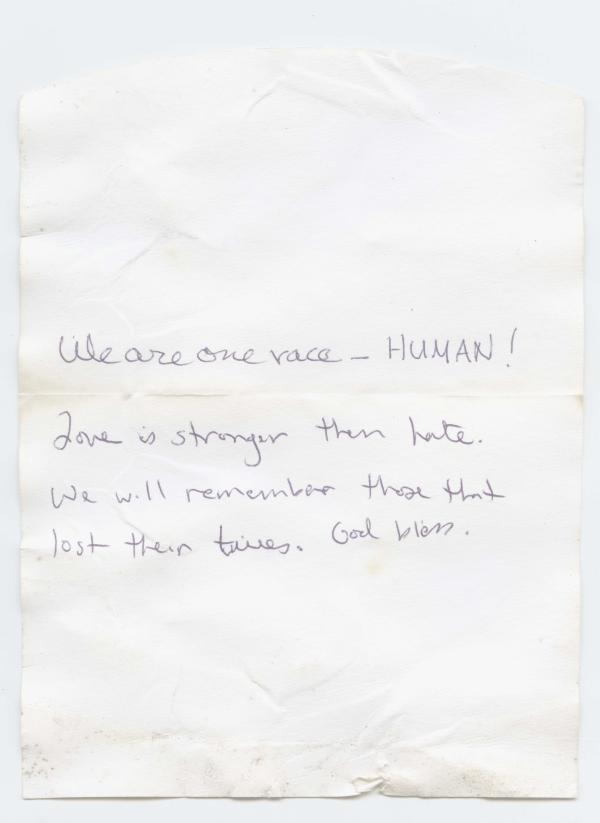 We are one race - HUMAN!
Love is stronger then hate.
We will remember those that
lost their lives. God bless.